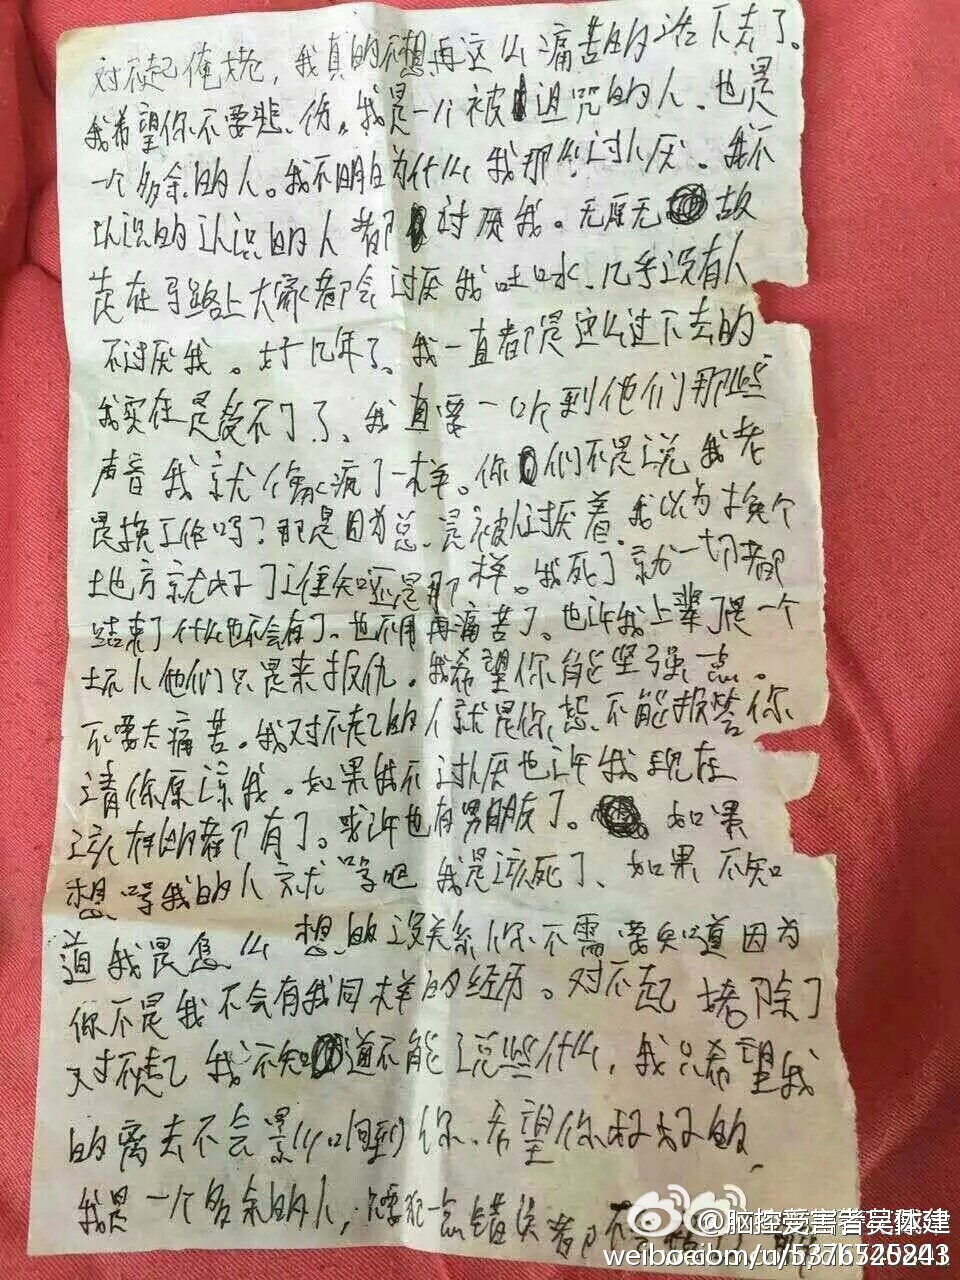 对不起俺姥，我真的不想再这么痛苦的活下去了。
我希望你不要悲伤。我是一个被诅咒的人、也是
一个多余的人。我不明白为什么我那么讨人厌。我不
认识的认识的人都讨厌我。无原无故
走在马路上大家都会讨厌我吐口水、几乎没有人
不讨厌我。好几年了、我一直都是这么过下去的
我实在是受不了了、我直要一听到他们那些
声音我就像疯了一样。你们不是说我老
是换工作吗？那是因为总是被人讨厌着、我以为换个
地方就好了谁知还是那样。我死了就一切都
结束了什么也不会有了。也不用再痛苦了。也许我上辈子是一个
坏人他们只是来报仇。我希望你能坚强点。
不要太痛苦。我对不起的人就是你、恕不能报答你
请你原谅我。如果我不讨人厌也许我现在
该有的都有了。或许也有男朋友了。如果
想等我的人就等吧我是该死了、如果不知
道我是怎么想的没关系你不需要知道因为
你不是我不会有我同样的经历。对不起姥除了
对不起我不知道不能说些什么，我只希望我
的离去不会影响到你、希望你好好的、
我是一个多余的人，
@脑控受害者吴保建
weibo.com/u/5376525243